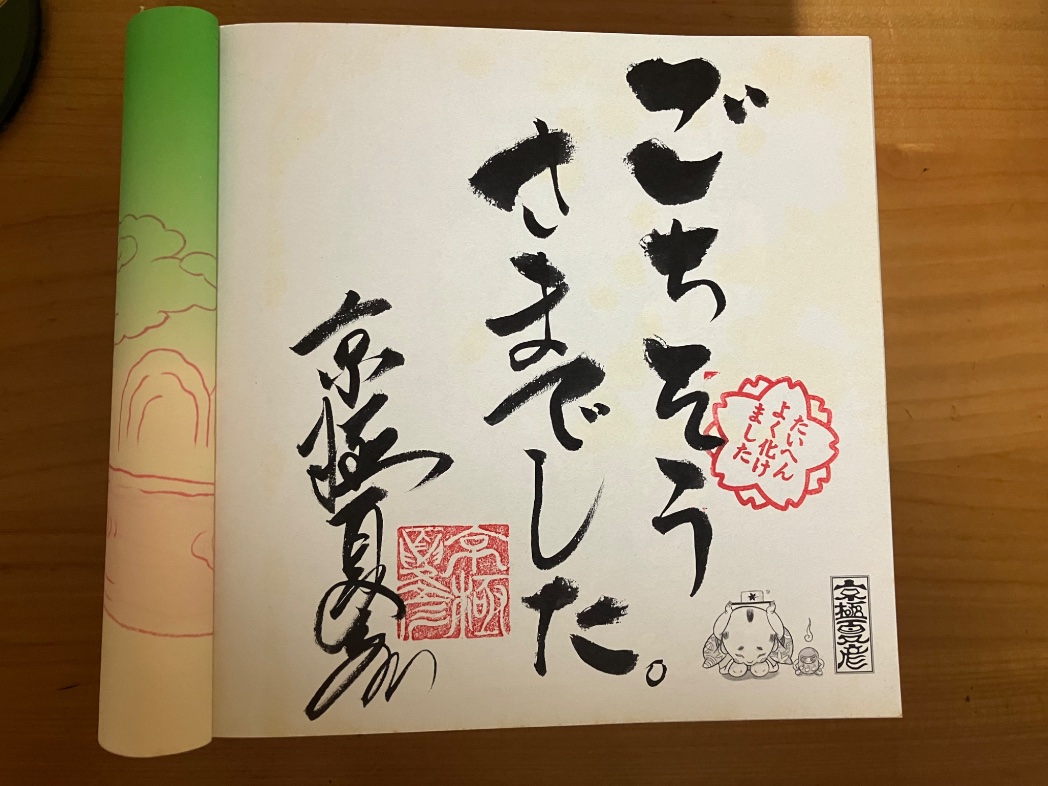 ごちそう
さまでした。
京極夏彦
京極
夏彦
たいへん
よく化け
ました
京極夏彦